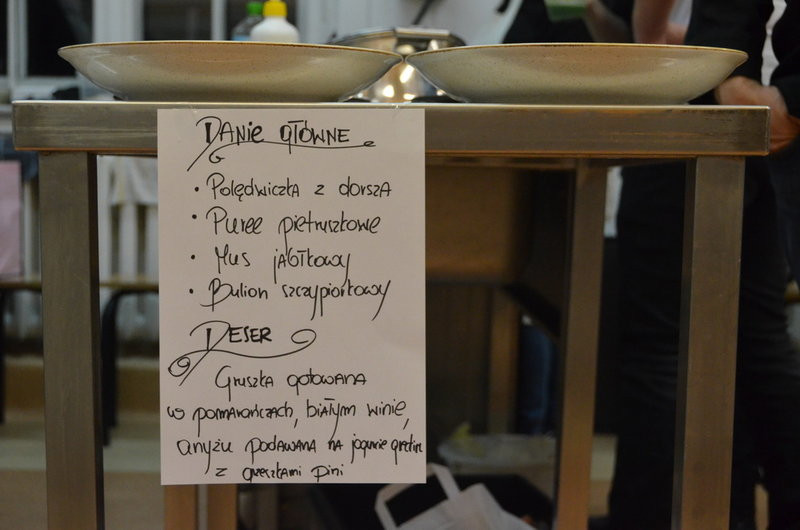 DANIE GŁÓWNE
• Polędwiczka z dorsza
• Puree pietruszkowe
• Mus jabłkowy
• Bulion szczypiorkowy
DESER
Gruszka gotowana
w pomarańczach, białym winie,
anyżu podawana na jogurcie
z orzeszkami pini